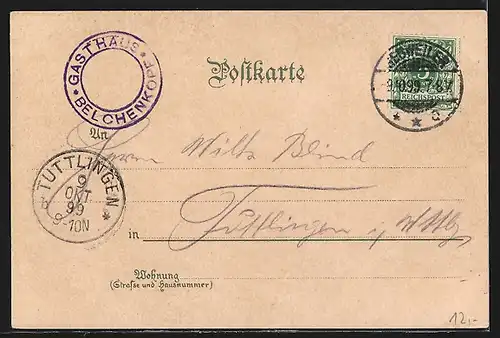 GASTHAUS • BELCHENKOPF •
Postkarte
GEBWEILER
9.10.99. 7-8 V
* * c
5
REICHSPOST
An
Herrn Wilh. Blind
TUTTLINGEN
9
OKT
99
8-10N
in Tuttlingen i/Wttbg
Wohnung
(Strasse und Hausnummer)
12.-